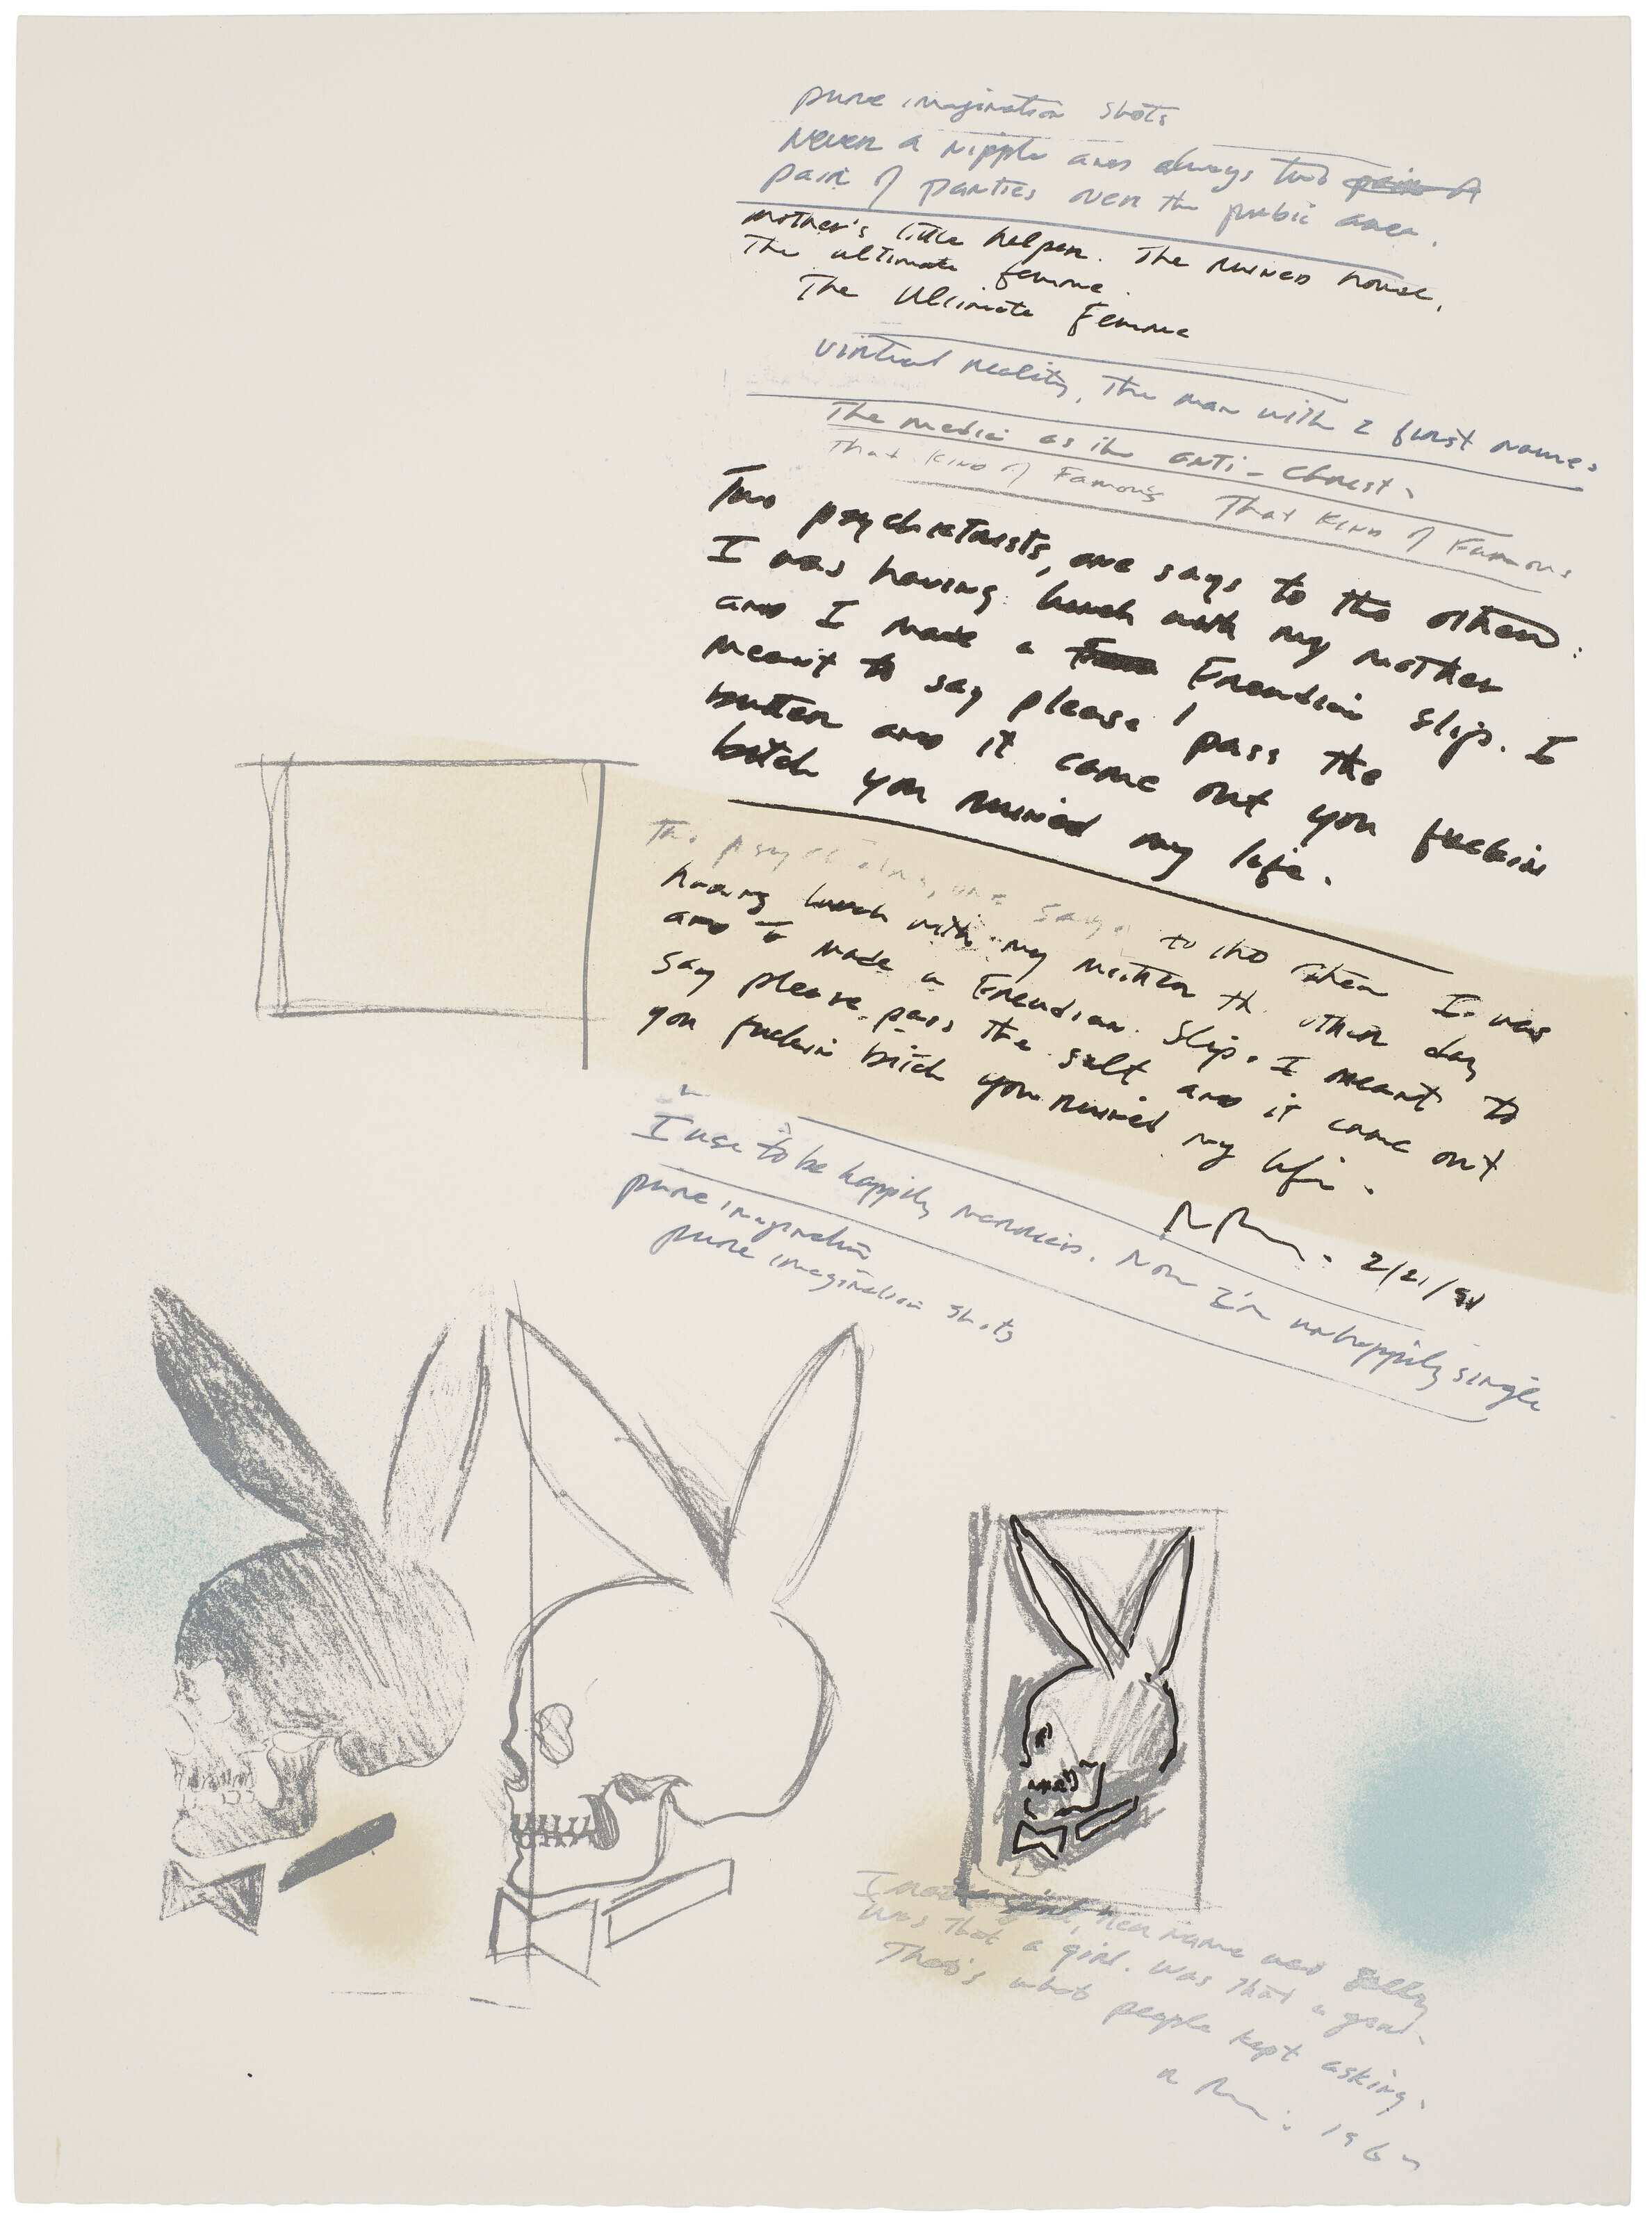 pure imagination shots
Never a nipple and always this pair of
pair of panties over the pubic area.
Mother's little helper. The ruined house.
The ultimate femme.
The Ultimate Femme
virtual reality, The man with 2 first names
The media as the anti-christ.
That Kind of Famous That Kind of Famous
Two psychiatrists, one says to the other:
I was having lunch with my mother
and I made a Freudian slip. I
meant to say please pass the
butter and it came out you fuckin
bitch you ruined my life.
Two psychiatrists, one says to the other I was
having lunch with my mother the other day
and I made a Freudian Slip. I meant to
say please pass the salt and it came out
you fuckin bitch you ruined my life.
2/21/91
I use to be happily married. Now I'm unhappily single
pure imagination
pure imagination shots
I met a girl, her name was Sally
Was that a girl. Was that a girl.
That's what people kept asking.